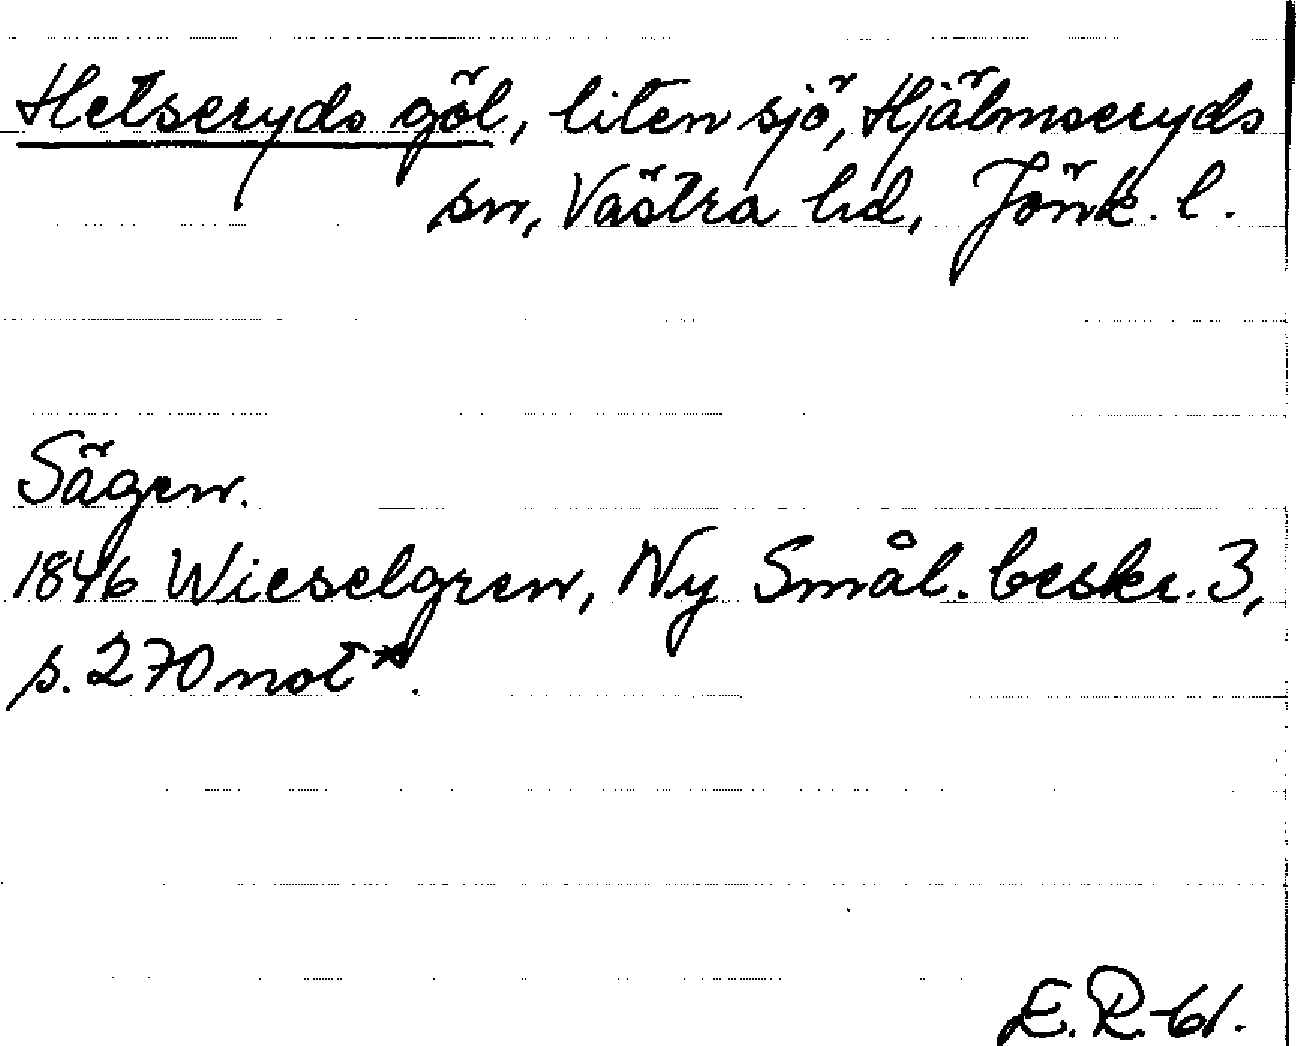 Hetseryds göl, liten sjö, Hjälmseryds
sn, Västra hd, Jönk. l.
Sägen.
1846 Wieselgren, Ny Smål. beskr. 3,
s. 270 not *.
E. R. -61.